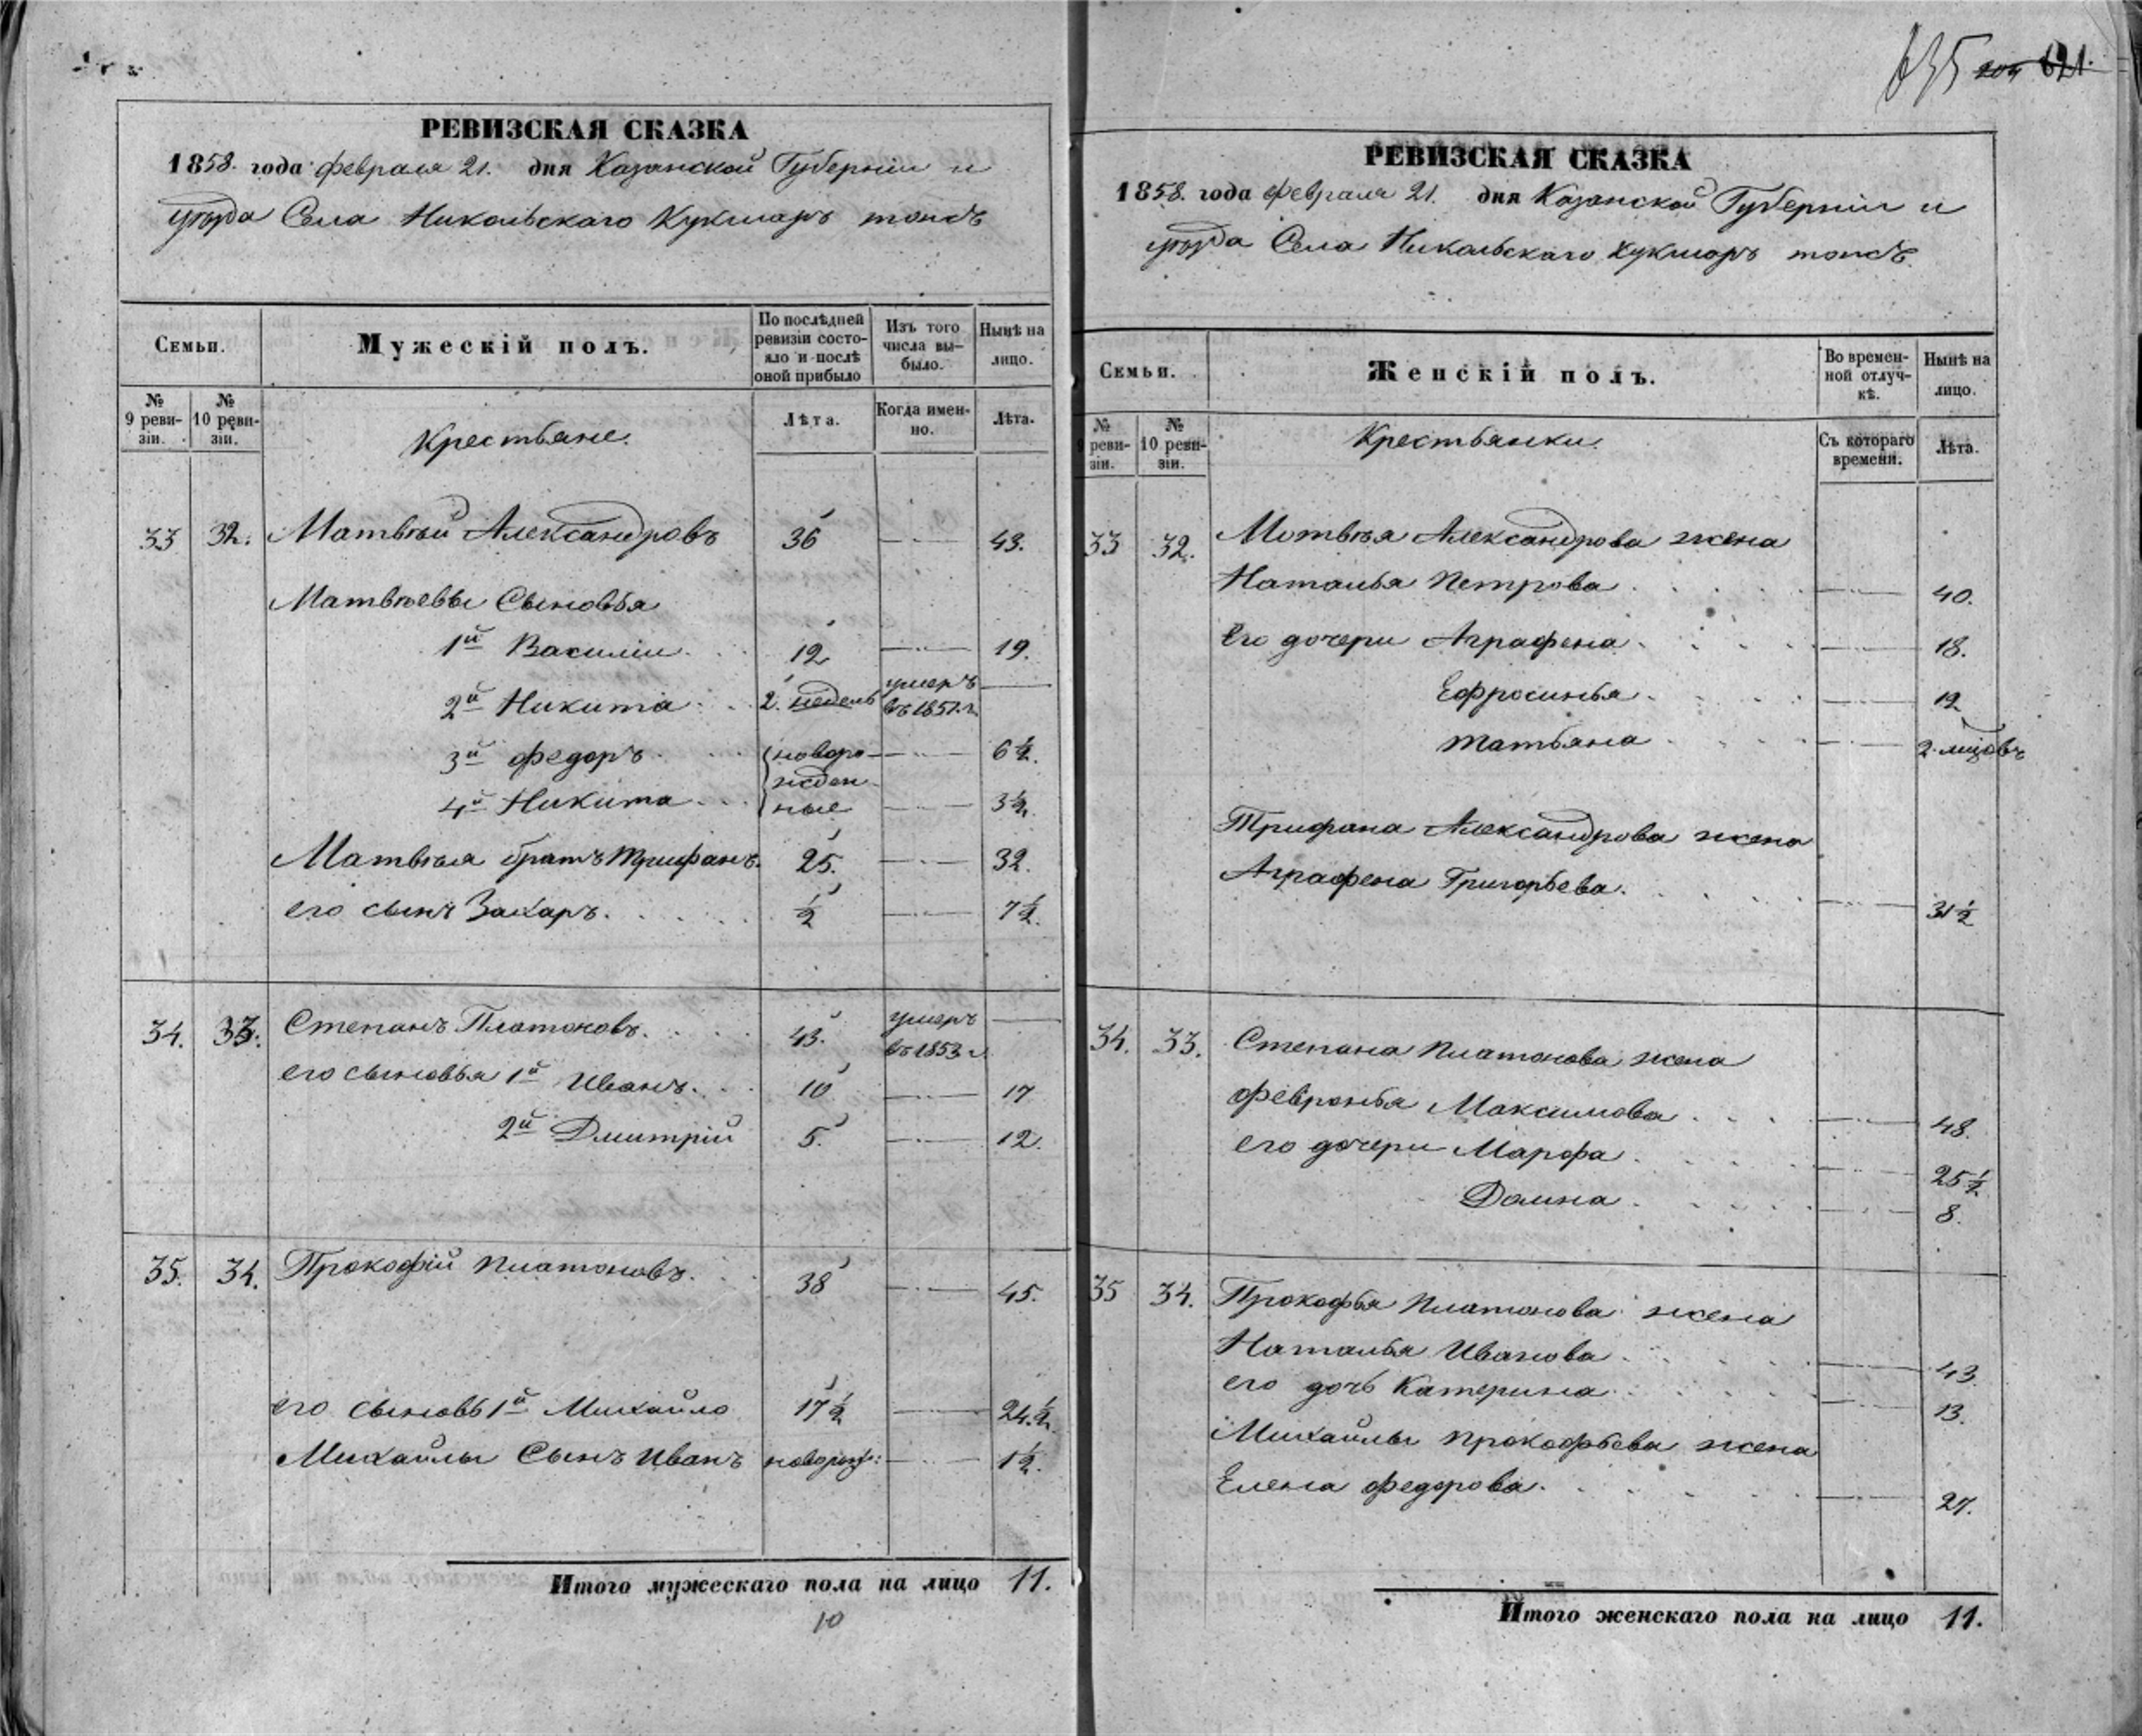 РЕВИЗСКАЯ СКАЗКА
1858. года февраля 21. дня Казанской Губерніи и
уѣзда Села Никольскаго Кукморъ тожъ
Семьи.
Мужескій полъ.
По послѣдней ревизіи состояло и послѣ оной прибыло
Изъ того числа выбыло.
Нынѣ на лицо.
№ 9 ревизіи.
№ 10 ревизіи.
Крестьяне.
Лѣта.
Когда именно.
Лѣта.
33 32. Матвѣй Александровъ 36 43.
Матвѣевы Сыновья
1й Василіи 12 19.
2й Никита 2. недель умеръ въ 1851. г.
3й Федоръ новоро- 6 ½.
жден-
4й Никита ные 3 ½
Матвѣя братъ Трифанъ. 25. 32.
его сынъ Захаръ. ½ 7 ½.
34. 33. Степанъ Платоновъ. 43. умеръ въ 1853 г.
его сыновья 1й Иванъ. 10 17
2й Дмитрій 5. 12.
35. 34. Прокофій Платоновъ. 38 45.
его сыновь 1й Михайло 17 ½ 24. ½.
Михайлы Сынъ Иванъ новорожд: 1 ½.
Итого мужескаго пола на лицо 11.
10
635 621.
РЕВИЗСКАЯ СКАЗКА
1858. года февраля 21. дня Казанской Губерніи и
уѣзда Села Никольскаго Кукморъ тожъ.
Семьи.
Женскій полъ.
Во временной отлучкѣ.
Нынѣ на лицо.
№ ревизіи.
№ 10 ревизіи.
Крестьянки.
Съ котораго времени.
Лѣта.
33 32. Матвѣя Александрова жена
Наталья Петрова 40.
Его дочери Аграфена 18.
Ефросинья 12
Татьяна
Трифана Александрова жена
Аграфена Григорьева. 31 ½
34. 33. Степана Платонова жена
Февронья Максимова 48.
его дочери Марфа 25 ½
Домна 8.
35 34. Прокофья Платонова жена
Наталья Иванова 43.
его дочь Катерина 13.
Михайлы Прокофьева жена
Елена Федорова. 27.
Итого женскаго пола на лицо 11.